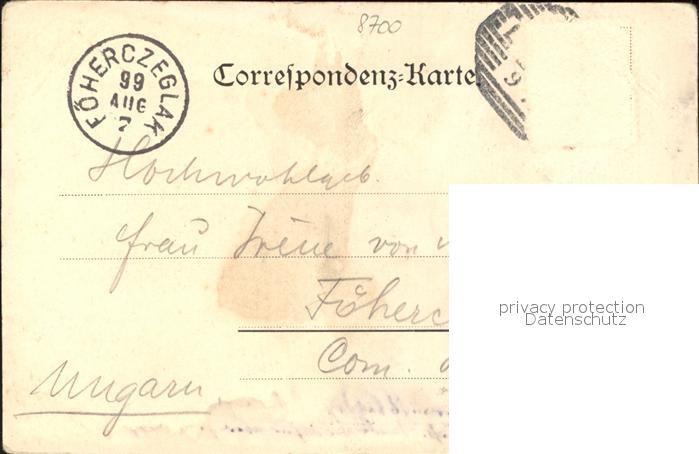 8700
FŐHERCZEGLAK
99
AUG
2
Correspondenz-Karte.
Hochwohlgeb.
Frau Irene von
Főherc
Com.
Ungarn
privacy protection
Datenschutz